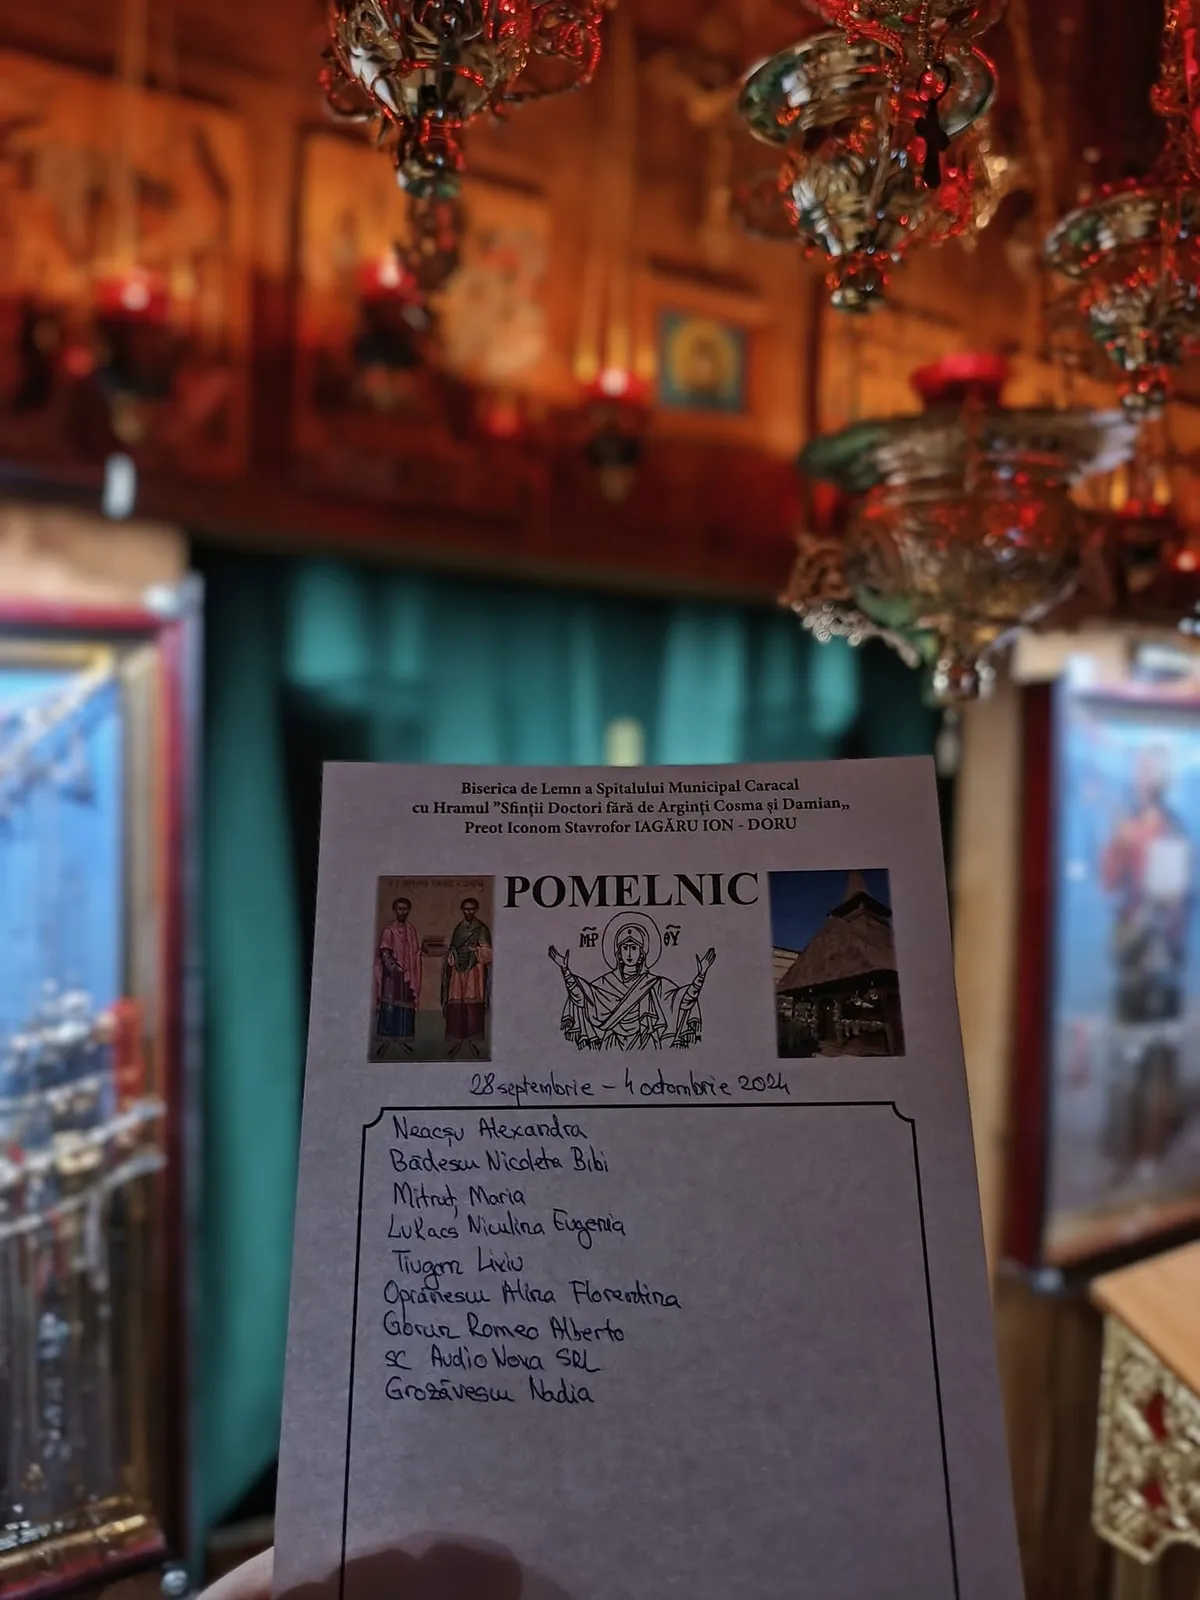 Biserica de Lemn a Spitalului Municipal Caracal
cu Hramul ”Sfinții Doctori fără de Arginți Cosma și Damian„
Preot Iconom Stavrofor IAGĂRU ION - DORU
POMELNIC
MP ΘΥ
28 septembrie - 4 octombrie 2024
Neacșu Alexandra
Bădescu Nicoleta Bibi
Mitruț Maria
Lukacs Niculina Eugenia
Tiugan Liviu
Oprănescu Alina Florentina
Gorun Romeo Alberto
SC Audio Nova SRL
Grozăvescu Nadia